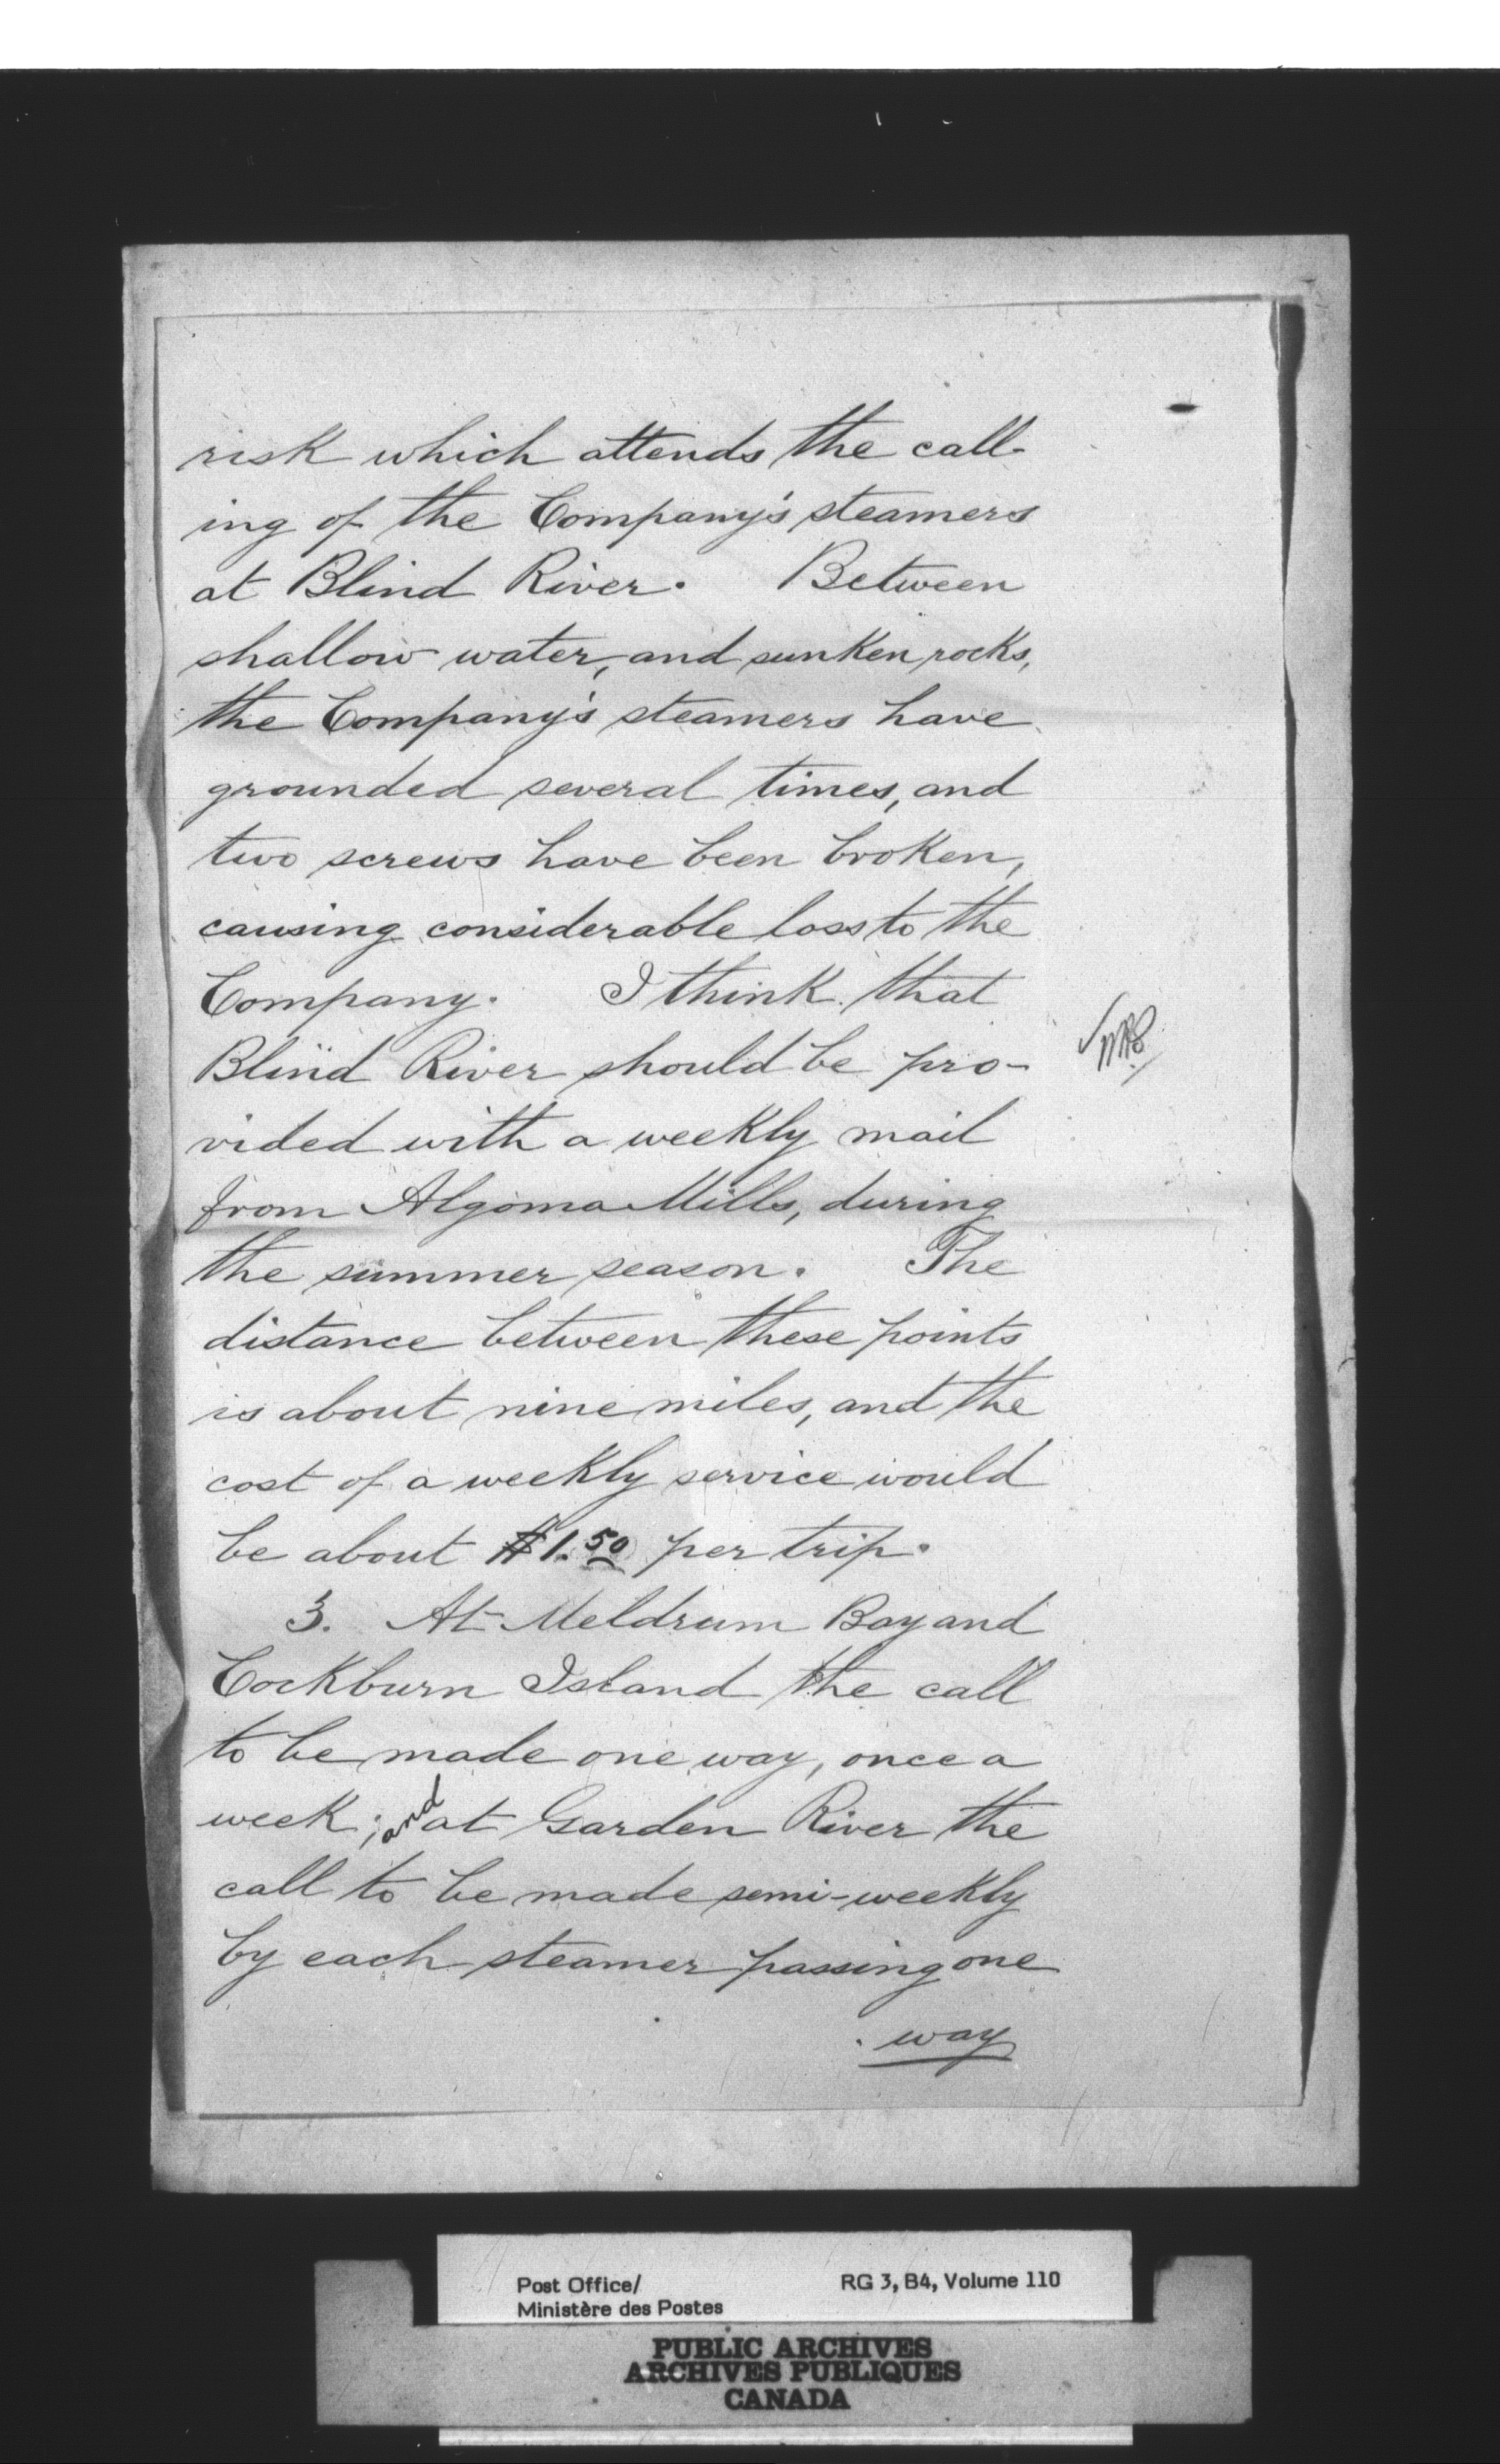 risk which attends the call-
ing of the Company's steamers
at Blind River. Between
shallow water, and sunken rocks,
the Company's steamers have
grounded several times, and
two screws have been broken,
causing considerable loss to the
Company. I think that
Blind River should be pro-
vided with a weekly mail
from Algoma Mills, during
the summer season. The
distance between these points
is about nine miles, and the
cost of a weekly service would
be about $1.50 per trip.
3. At Meldrum Bay and
Cockburn Island the call
to be made one way, once a
week; and at Garden River the
call to be made semi-weekly
by each steamer passing one
way
Post Office/
Ministère des Postes
RG 3, B4, Volume 110
PUBLIC ARCHIVES
ARCHIVES PUBLIQUES
CANADA